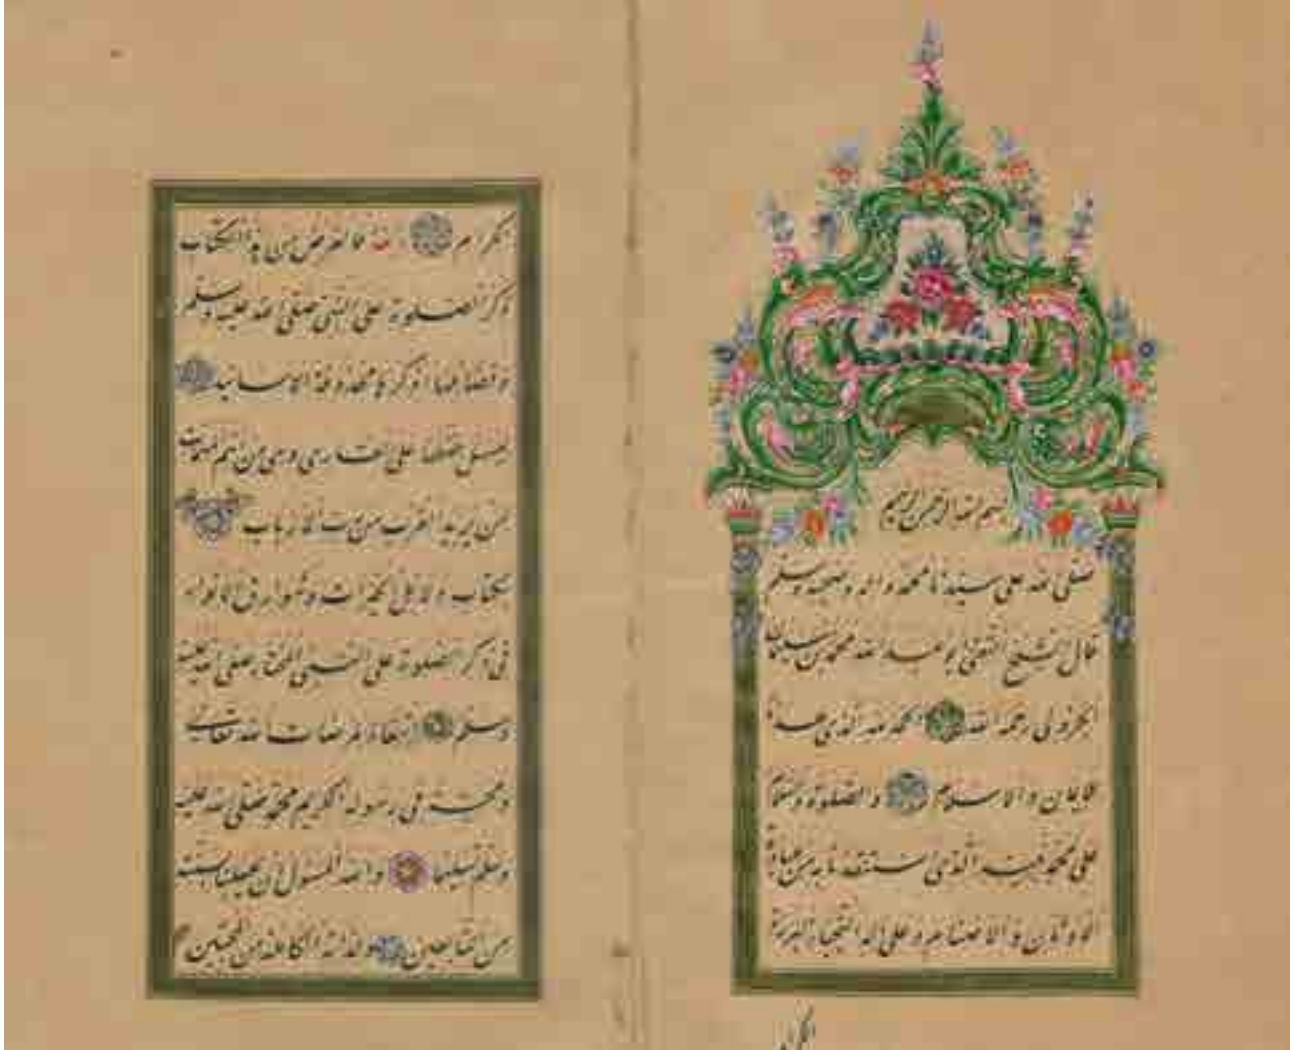 بسم الله الرحمن الرحيم
صلى الله على سيدنا محمد واله وصحبه وسلم
قال الشيخ الفقيه ابو عبد الله محمد بن سليمان
الجزولى رحمه الله الحمد لله الذى هدانا
للايمان والاسلام والصلوة والسلام
على محمد نبيه الذى استنقذنا به من عبادة
الاوثان والاصنام وعلى اله النجباء البررة
الكرام
الكرام هذا فالغرض من هذا الكتاب
ذكر الصلوة على النبى صلى الله عليه وسلم
وفضائلها نذكرها محذوفة الاسانيد
ليسهل حفظها على القارى وهى من اهم المهمات
لمن يريد القرب من رب الارباب
بكتاب دلائل الخيرات وشوارق الانوار
فى ذكر الصلوة على النبى المختار صلى الله عليه
وسلم ابتغاء لمرضات الله تعالى
ومحبة فى رسوله الكريم محمد صلى الله عليه
وسلم تسليما والله المسئول ان يجعلنا لسنته
من التابعين ولذاته الكاملة من المحبين